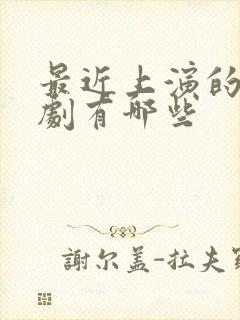 最近上演的
劇有哪些
謝尔盖-拉夫